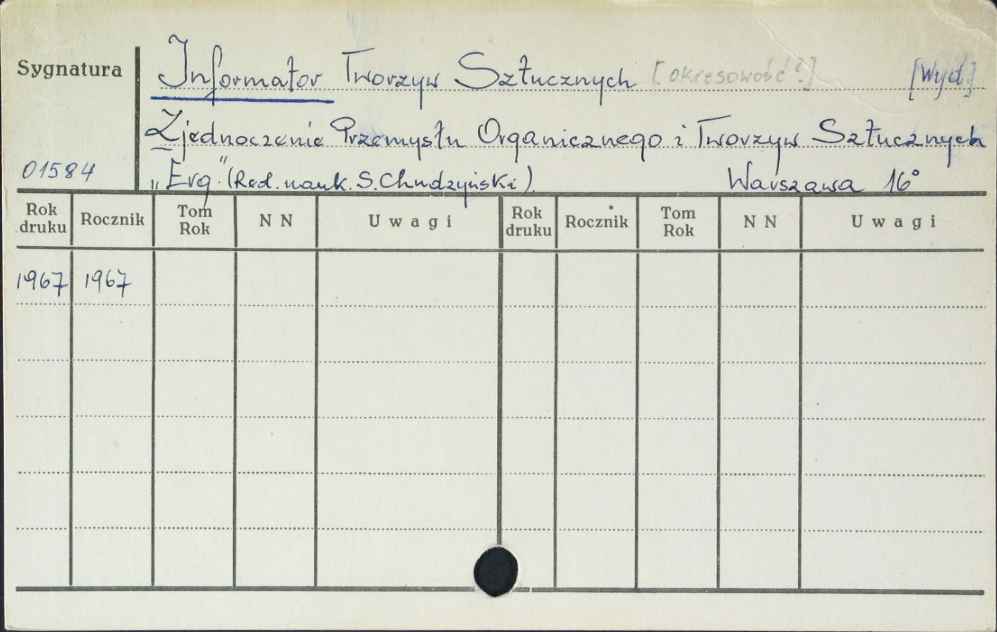 Sygnatura
Informator Tworzyw Sztucznych [okresowość?] [Wyd.]
Zjednoczenie Przemysłu Organicznego i Tworzyw Sztucznych
01584
„Erg" (Red. nauk. S. Chudzyński) Warszawa 16°
Rok druku Rocznik Tom Rok NN Uwagi Rok druku Rocznik Tom Rok NN Uwagi
1967 1967